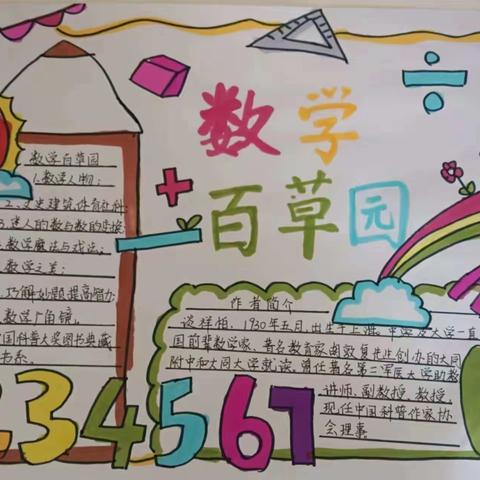 数学
百草园
数学百草园
1.数学人物;
2、文史建筑体育社科
人的数与数的
数学魔法与戏法;
数学之美;
巧解妙题提高智力
数学广角镜。
国科普大奖图书典藏
书系。
作者简介
谈祥柏,1930年五月,出生于上海,中学及大学一直
国前辈数学家、著名教育家胡敦复先生创办的大同
附中和大同大学就读,曾任著名第二军医大学助教
讲师、副教授、教授,
现任中国科普作家协
会理事
234567